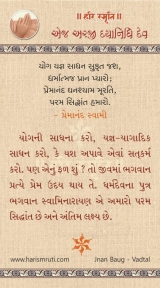 ॥ હરિ સ્મૃતિ ॥
એજ અરજી દયાનિધિ દેવ
યોગ યજ્ઞ સાધન સુકૃત જશ,
ધર્માત્મજ પ્રાન પ્યારો;
પ્રેમાનંદ ઘનશ્યામ મૂરતિ,
પરમ સિદ્ધાંત હમારો.
- પ્રેમાનંદ સ્વામી
યોગની સાધના કરો, યજ્ઞ-યાગાદિક
સાધન કરો, કે યશ અપાવે એવાં સત્કર્મ
કરો. પણ એનું ફળ શું ? તો જીવમાં ભગવાન
પ્રત્યે પ્રેમ ઉદય થાય તે. ધર્મદેવના પુત્ર
ભગવાન સ્વામિનારાયણ એ અમારો પરમ
સિદ્ધાંત છે અને અંતિમ લક્ષ્ય છે.
www.harismruti.com Jnan Baug - Vadtal